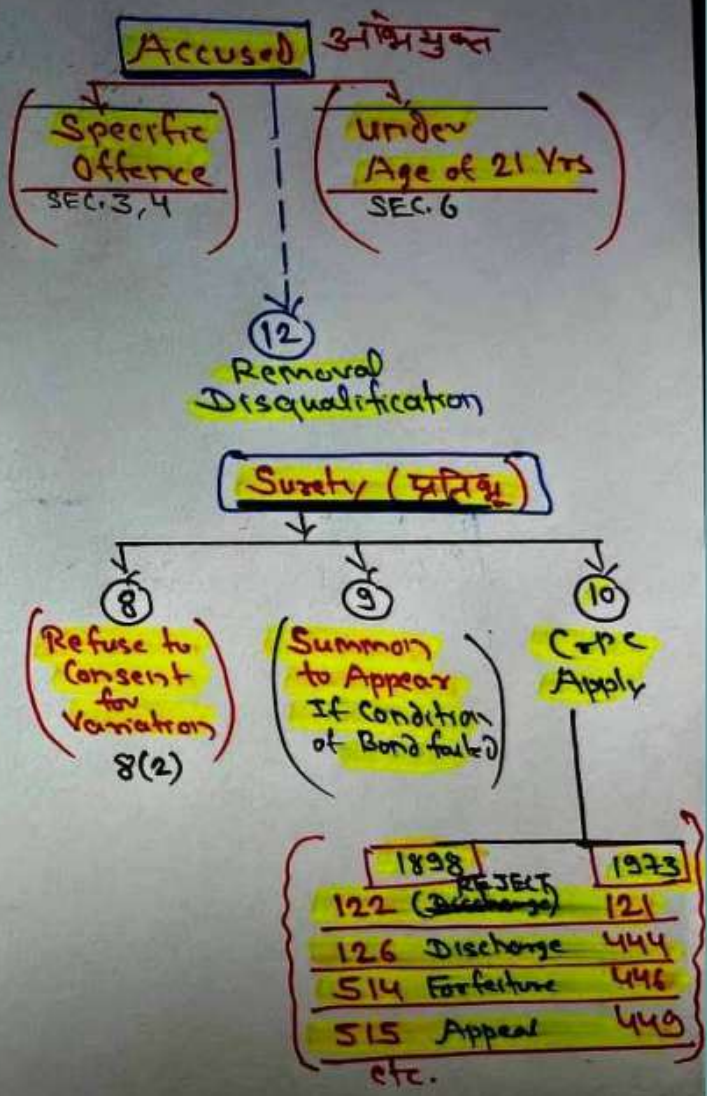 Accused अभियुक्त
Specific
Offence
SEC. 3, 4
under
Age of 21 Yrs
SEC. 6
12
Removal
Disqualification
Surety (प्रतिभू)
8
Refuse to
Consent
for
Variation
8(2)
9
Summon
to Appear
If Condition
of Bond failed
10
CrPC
Apply
1898 1973
REJECT
122 (Discharge) 121
126 Discharge 444
514 Forfeiture 446
515 Appeal 449
etc.